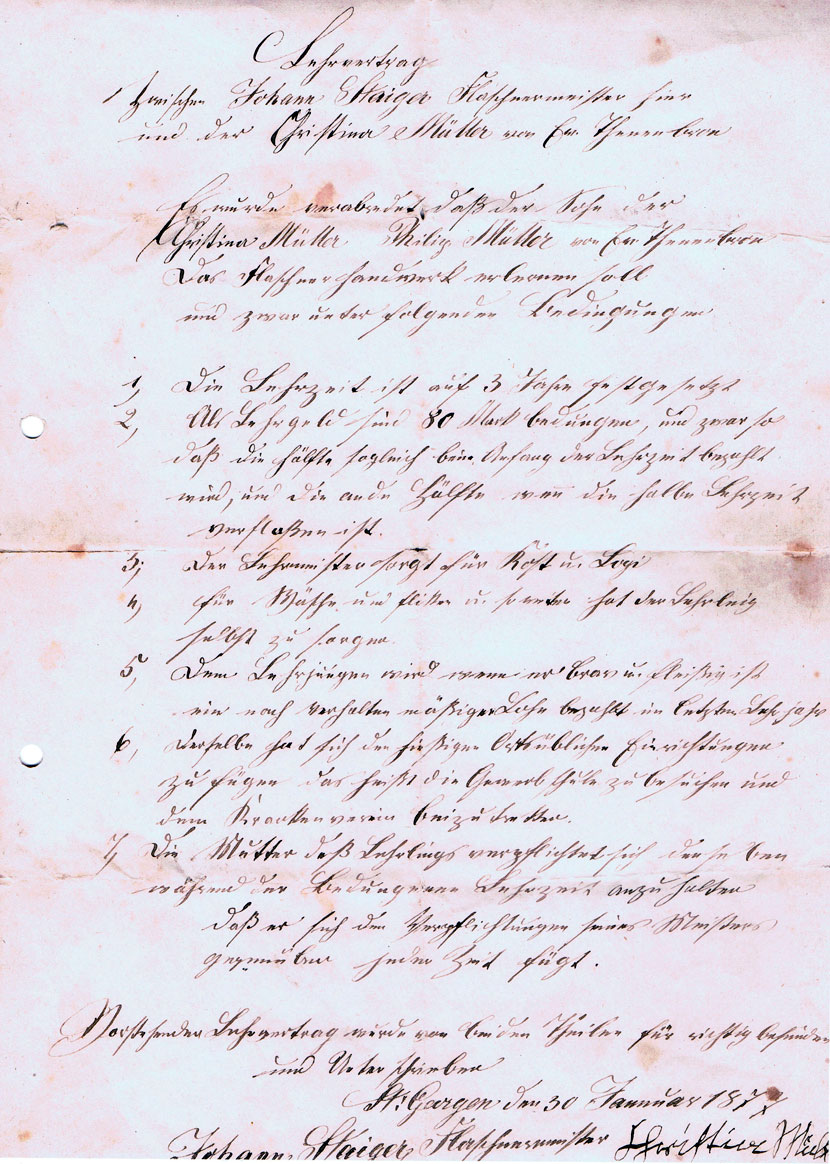 Lehrvertrag
Zwischen Johann Staiger Flaschnermeister hier
und der Christina Müller von Ev. Thenenbron
Es wurde verabredet daß der Sohn der
Christina Müller Philip Müller von Ev. Thenenbron
Das Flaschnerhandwerk erlernen soll
und zwar unter folgenden Bedingungen
1, Die Lehrzeit ist auf 3 Jahre festgesetzt
2, Als Lehrgeld sind 80 Mark bedungen, und zwar so
daß die Hälfte sogleich beim Anfang der Lehrzeit bezahlt
wird, und die andere Hälfte wenn die halbe Lehrzeit
verfloßen ist.
3, Der Lehrmeister sorgt für Kost u. Logi
4, für Wäsche und fliken u. s. weiter hat der Lehrling
selbst zu sorgen.
5, Dem Lehrjungen wird wenn er brav u. fleißig ist
ein nach verhalten mäßiger Lohn bezahlt im letzten Lehrjahr
6, Derselbe hat sich den hießigen Ortsüblichen Einrichtungen
zu fügen das heißt die Gewerbschule zu besuchen und
dem Krankenverein beizutretten.
7, Die Mutter deß Lehrlings verpflichtet sich denselben
während der Bedungenen Lehrzeit anzuhalten
daß er sich den Verpflichtungen seines Meisters
gegenüber jeder Zeit fügt.
Vorstehender Lehrvertrag wurde von beiden Theilen für richtig befunden
und Unterschrieben
St. Gorgen den 30 Januar 1877
Johann Staiger Flaschnermeister Christine Müll